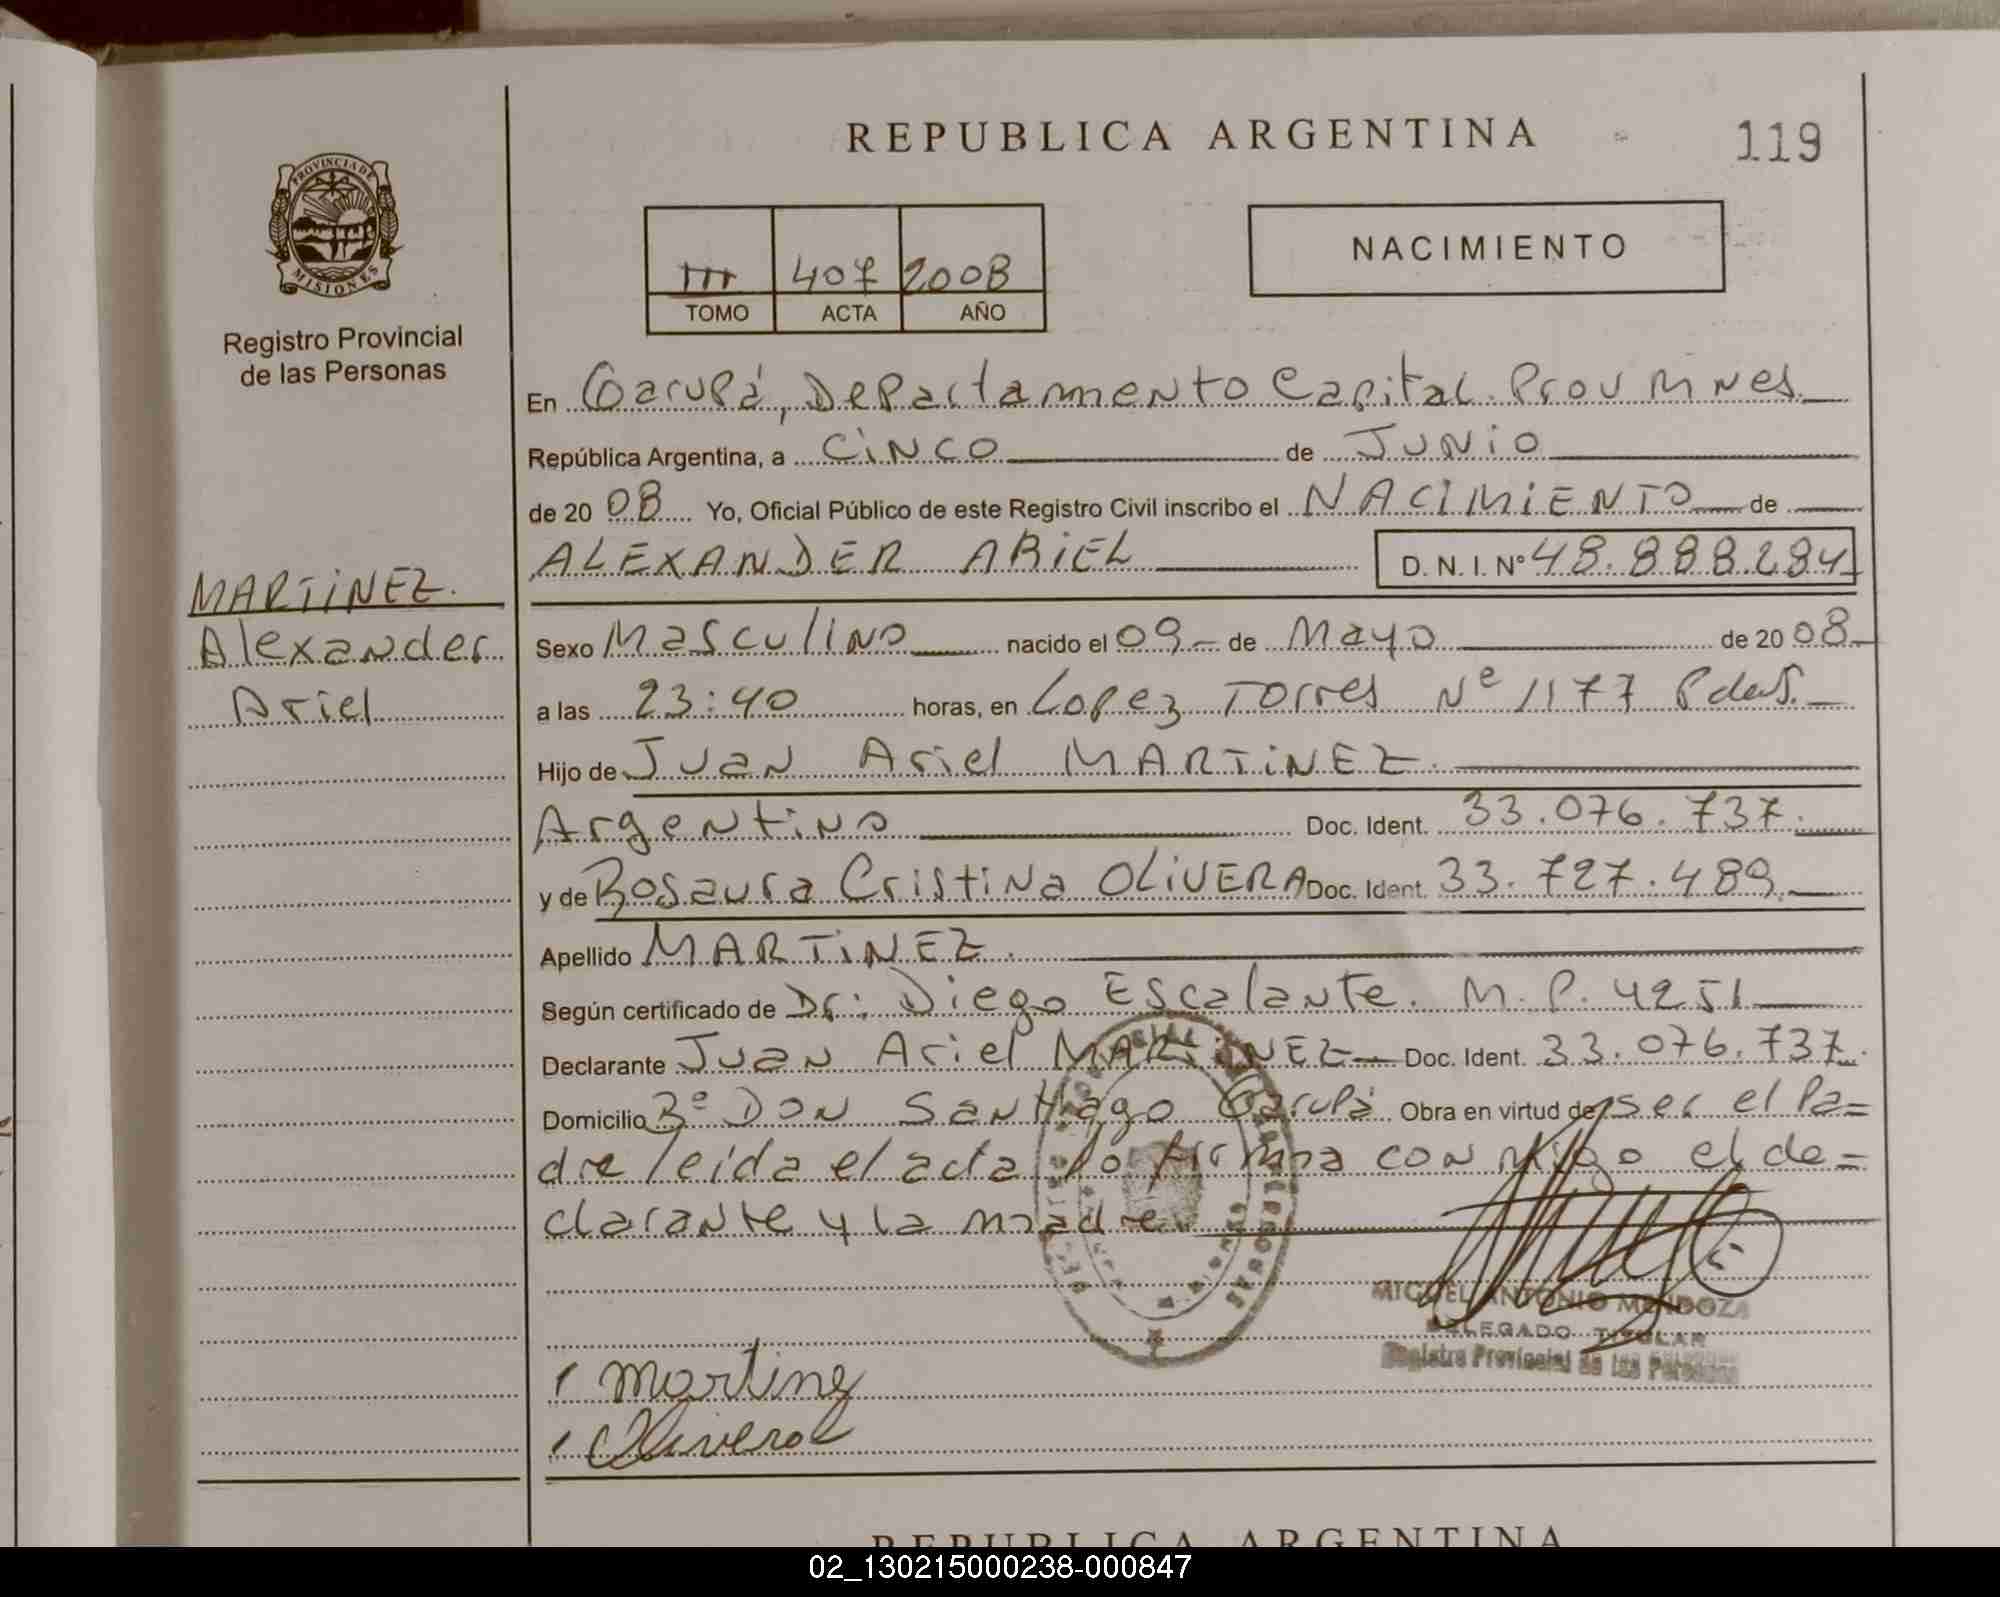 REPUBLICA ARGENTINA
119
PROVINCIA DE
MISIONES
Registro Provincial
de las Personas
III 407 2008
TOMO ACTA AÑO
NACIMIENTO
En Garupá, Departamento Capital. Prov Mnes.
República Argentina, a CiNCO de JUNiO
de 20 08 Yo, Oficial Público de este Registro Civil inscribo el NACIMIENTO de
ALEXANDER ARIEL D. N. I. Nº 48.888.284
MARTiNEZ.
Alexander
Ariel
Sexo Masculino nacido el 09 de Mayo de 20 08
a las 23:40 horas, en Lopez Torres Nº 1177 Pdas.
Hijo de Juan Ariel MARTiNEZ.
Argentino Doc. Ident. 33.076.737.
y de Rosaura Cristina OLiVERA Doc. Ident. 33.727.489.
Apellido MARTiNEZ.
Según certificado de Dr: Diego Escalante. M.P. 4251
Declarante Juan Ariel MARTiNEZ Doc. Ident. 33.076.737.
Domicilio Bº DON Santiago Garupá Obra en virtud de ser el Pa=
dre leída el acta la firma con migo el de=
clarante y la madre.
MIGUEL ANTONIO MENDOZA
DELEGADO TITULAR
Registro Provincial de las Personas
Martinez
Olivera
REPUBLICA ARGENTINA
02_130215000238-000847